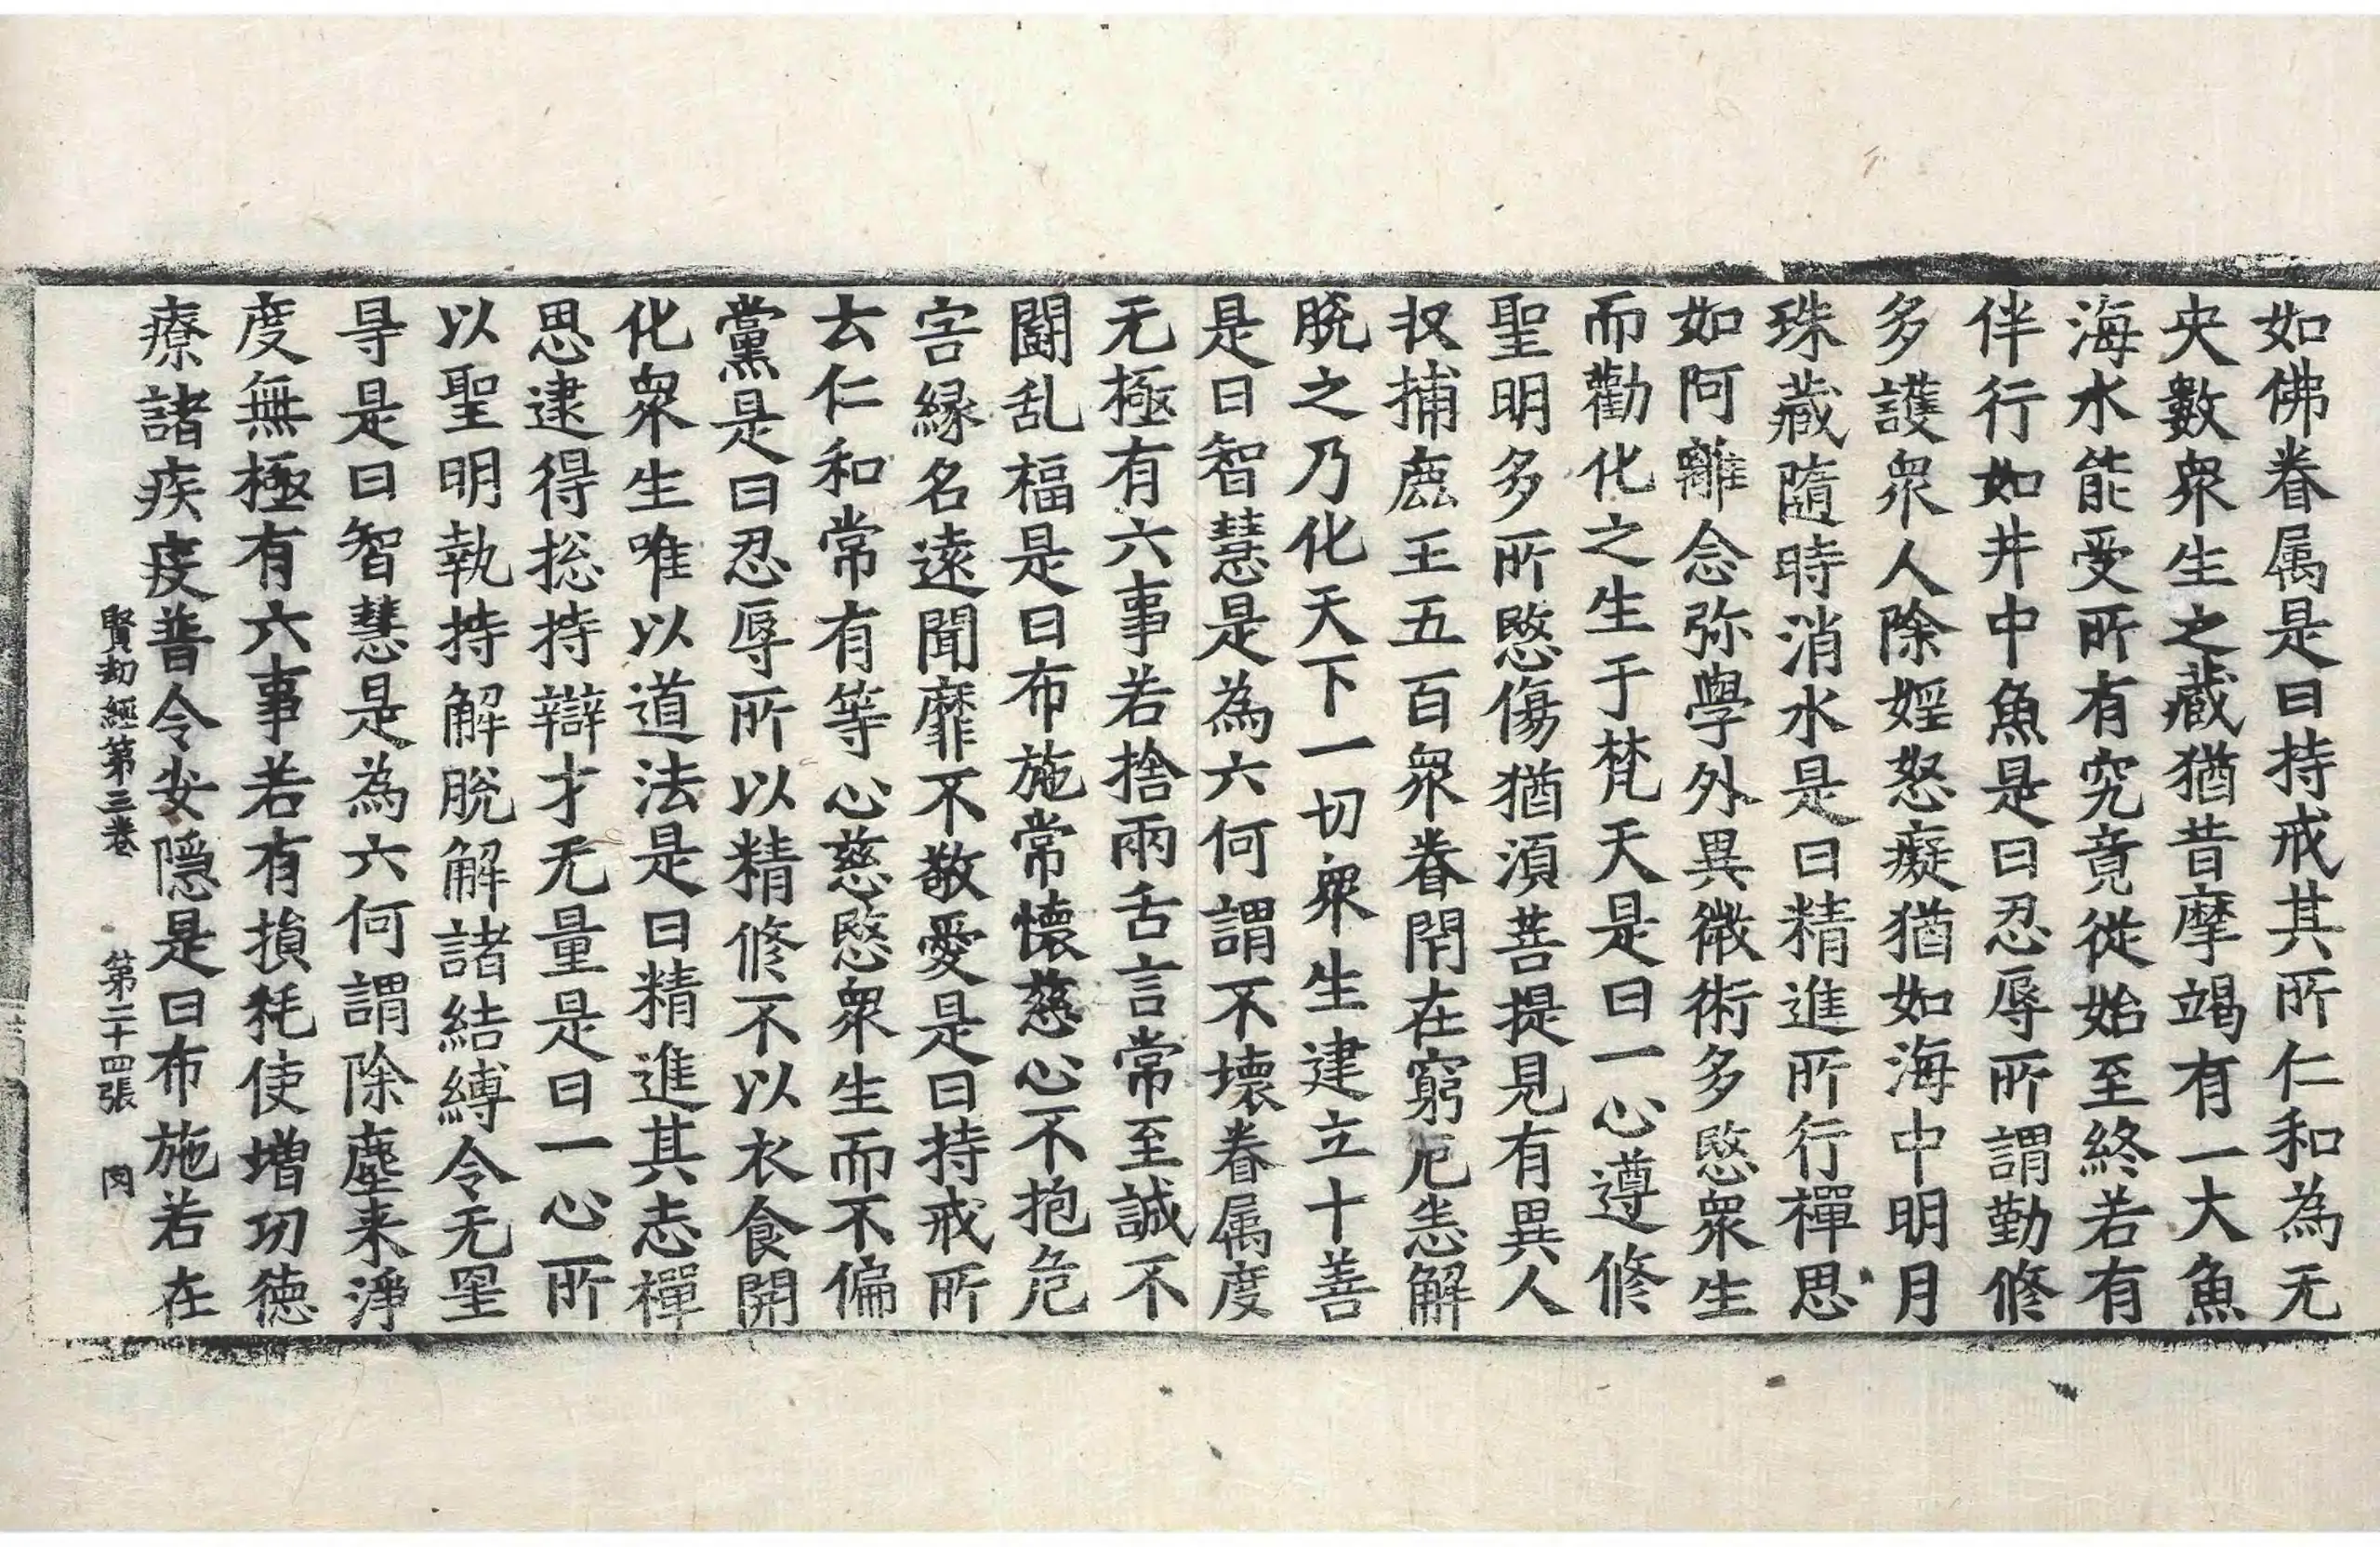 如佛眷属是曰持戒其所仁和為无
央數衆生之藏猶昔摩竭有一大魚
海水能受所有究竟從始至終若有
伴行如井中魚是曰忍辱所謂勤修
多護衆人除婬怒癡猶如海中明月
珠藏隨時消水是曰精進所行禪思
如阿離念弥學外異徴術多愍衆生
而勸化之生于梵天是曰一心遵修
聖明多所愍傷猶湏菩提見有異人
捕鹿王五百衆眷閇在窮厄恙解
脫之乃化天下一切衆生建立十善
是曰智慧是為六何謂不壞眷属度
无極有六事若捨兩舌言常至誠不
鬪乱福是曰布施常懷慈心不抱危
害縁名遠聞靡不敬愛是曰持戒所
去仁和常有等心慈愍衆生而不偏
黨是曰忍辱所以精修不以衣食開
化衆生唯以道法是曰精進其志禪
思逮得捴持辯才无量是曰一心所
以聖明執持解脫解諸結縛令无罣
㝵是曰智慧是為六何謂除塵来淨
度無極有六事若有損耗使增功徳
療諸疾疫普令安隱是曰布施若在
賢劫經第三卷 第二十四張